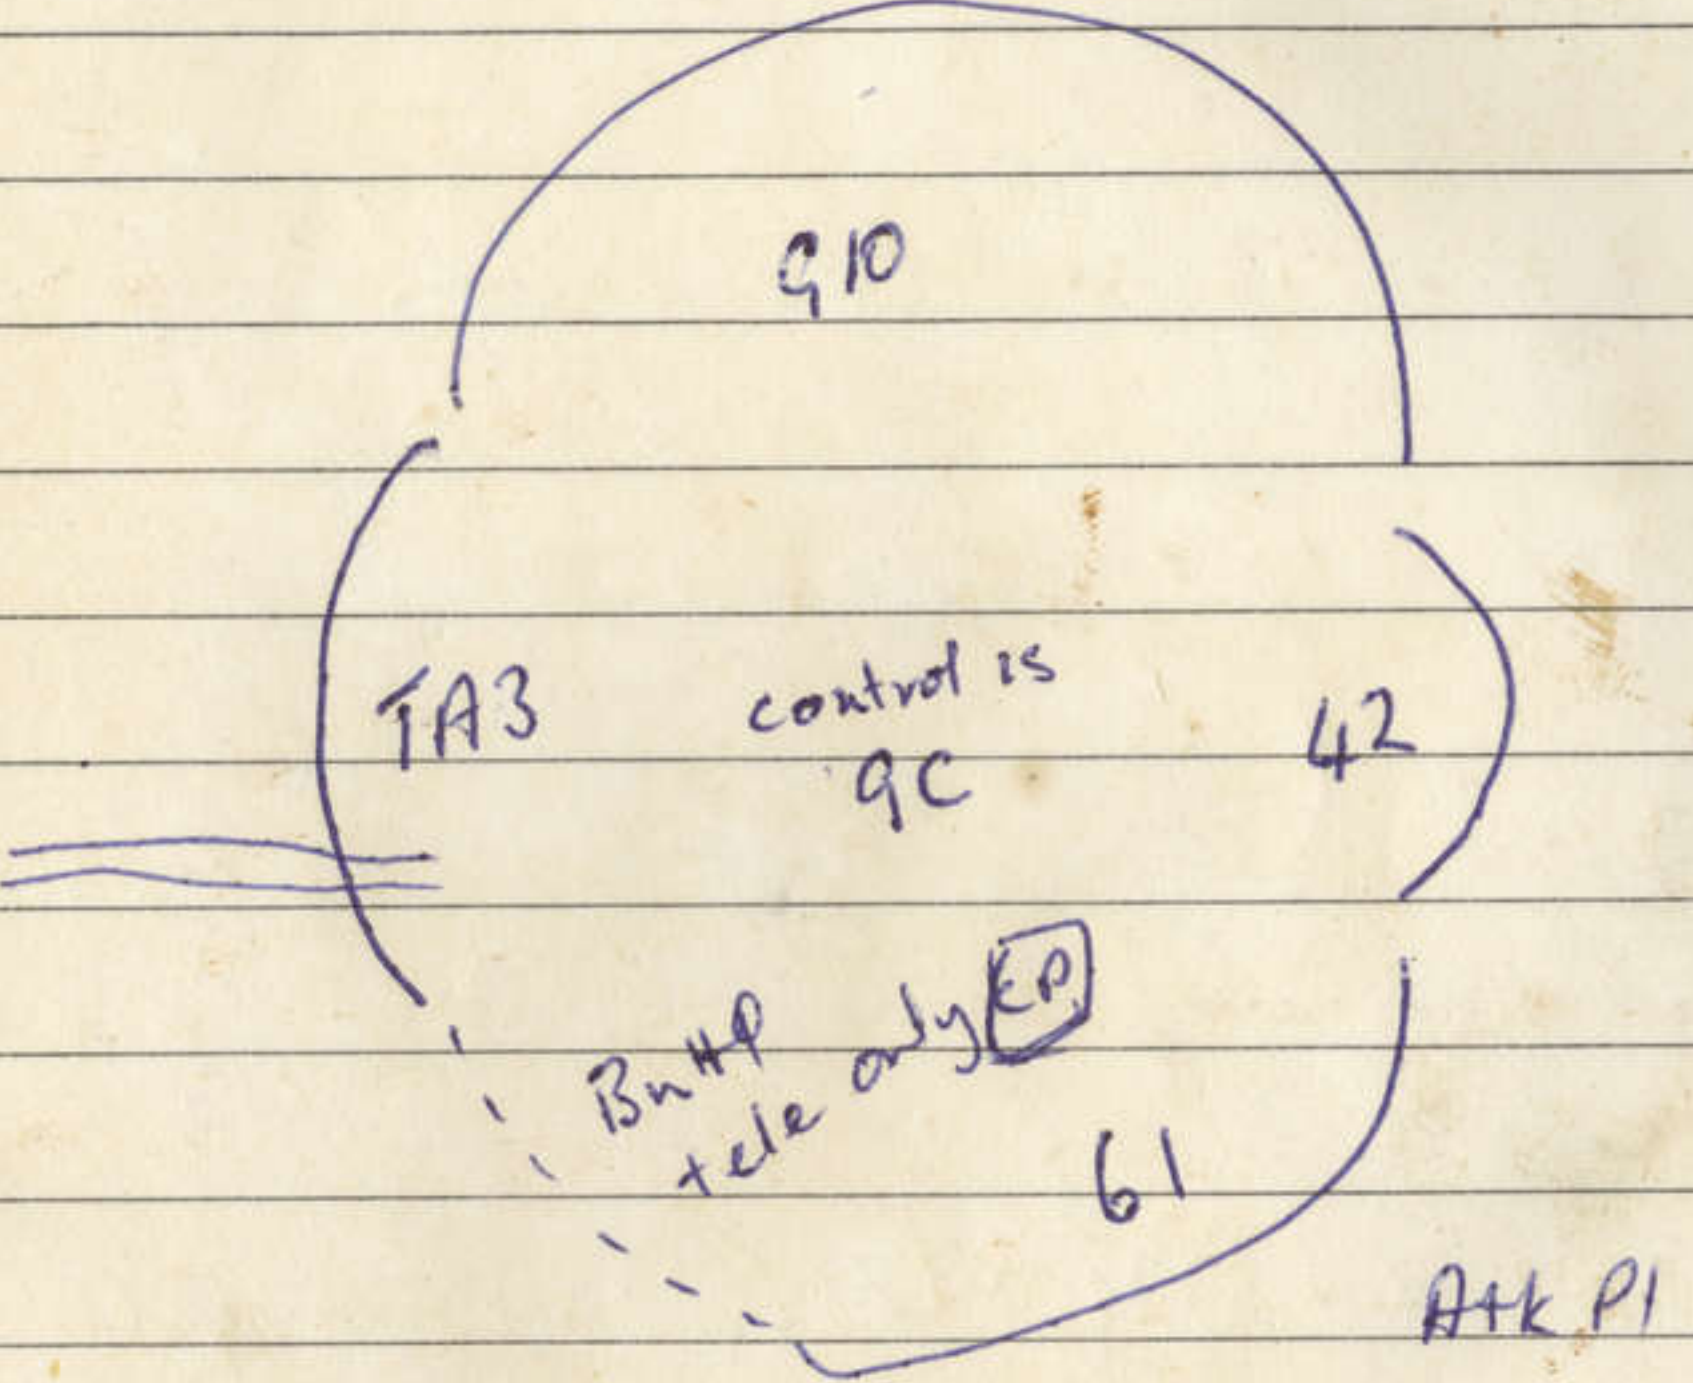 910
TA3
control is
9C
42
Bn HQ
tele only
CP
61
Atk Pl